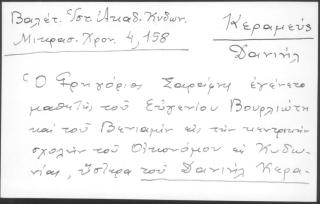 Βαλέτ. Ἱστ. Ἀκαδ. Κυδων.
Μικρασ. Χρον. 4, 158
Κεραμεύς
Δανιήλ
Ὁ Γρηγόριος Σαράφης ἐγένετο
μαθητὴς τοῦ Εὐγενίου Βουρλιώτη
καὶ τοῦ Βενιαμὶν εἰς τὴν κεντρικὴν
σχολὴν τοῦ Οἰκονόμου ἐν Κυδω-
νίαις, ὕστερα τοῦ Δανιὴλ Κερα-